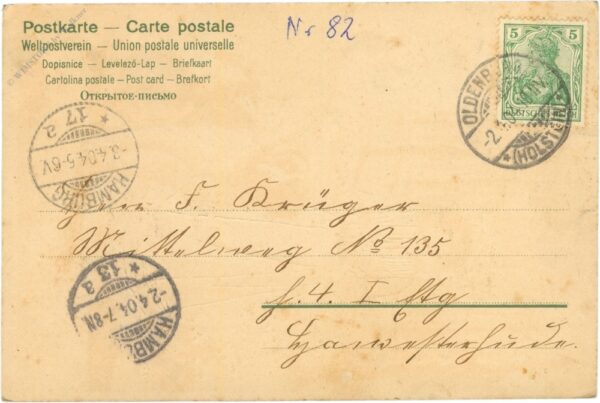 Postkarte — Carte postale
Weltpostverein — Union postale universelle
Dopisnice — Levelező-Lap — Briefkaart
Cartolina postale — Post card — Brefkort
Открытое-письмо
Nr 82
5 5
OLDENBURG
-2.
*(HOLSTEIN)
* 17 a
-3.4.04.5-6V.
HAMBURG
Herr F. Krüger
Mittelweg No 135
H. 4. I Etg
Harvestehude.
* 13 a
-2.4.04.7-8N.
HAMBURG